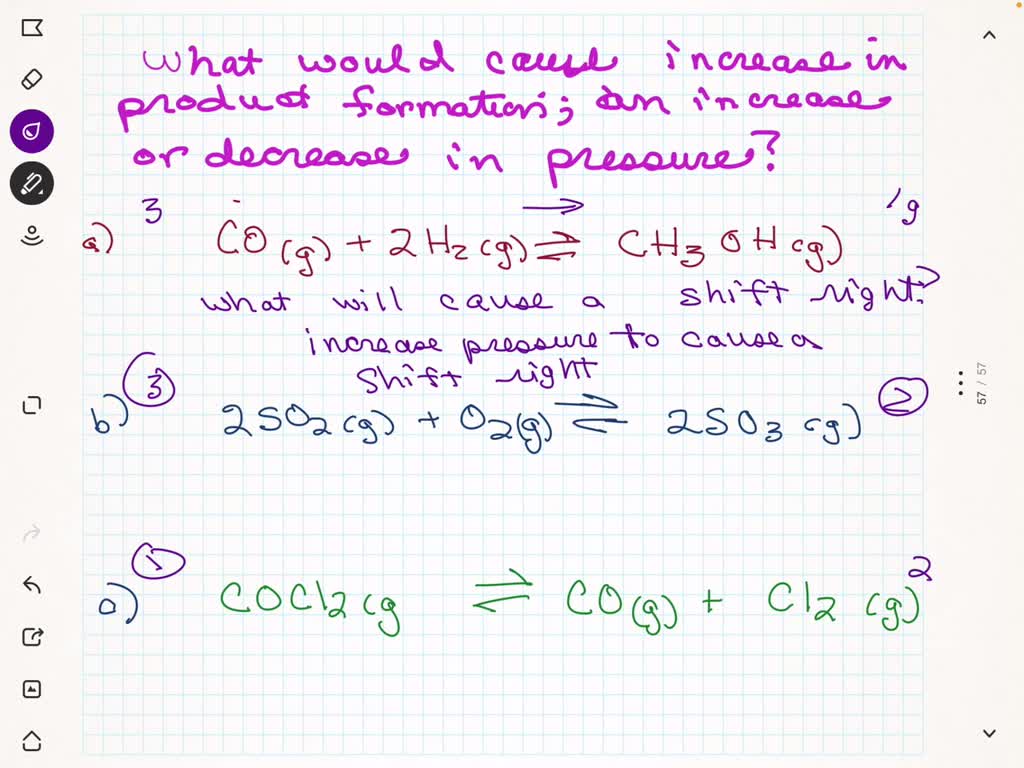 What would cause increase in
product formation; an increase
or decrease in pressure?
3 1g
a) CO(g) + 2H2(g) ⇌ CH3OH(g)
what will cause a shift right?
increase pressure to cause a
shift right
3 2
b) 2SO2(g) + O2(g) ⇌ 2SO3(g)
1 2
c) COCl2(g ⇌ CO(g) + Cl2(g)
57 / 57